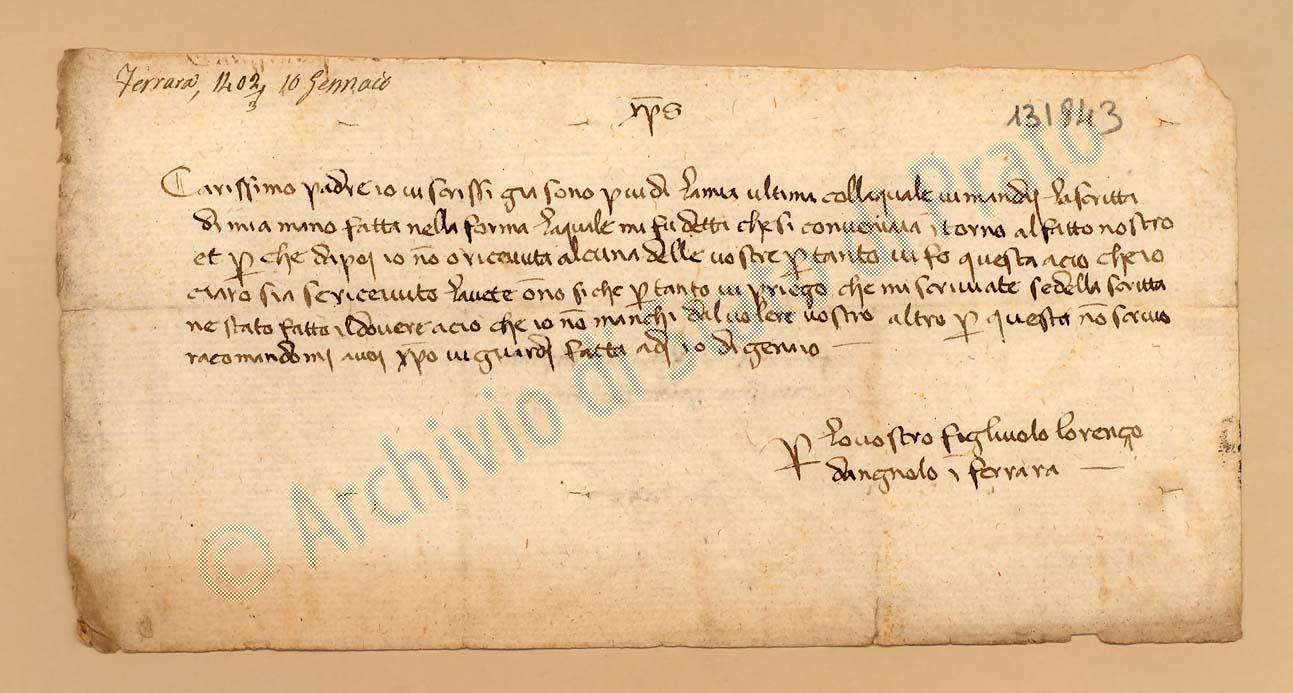 Ferrara, 1402/3 10 Gennaio
xp̄s
131843
Carissimo padre io vi scrissi gia sono p̱iu di lamia ultima collaquale vi mandaj lascritta
di mia mano fatta nella forma laquale mi fu detta chesi conveniva ītorno alfatto nostro
et p̱ che dipoj io nō o ricevuta alcuna delle vostre p̱ tanto vi fo questa acio cheio
ciaro sia sericevuto lavete ōno si che p̱ tanto vi priego che mi scriviate sedella scritta
ne stato fatto ildovere acio che io nō manchi dalvolere vostro altro p̱ questa nō scrivo
racomandomi avoi xp̄o viguardj fatta adj 10 digenaio
P̱ lovostro figliuolo lorenço
dangnolo ī ferrara
© Archivio di Stato di Prato